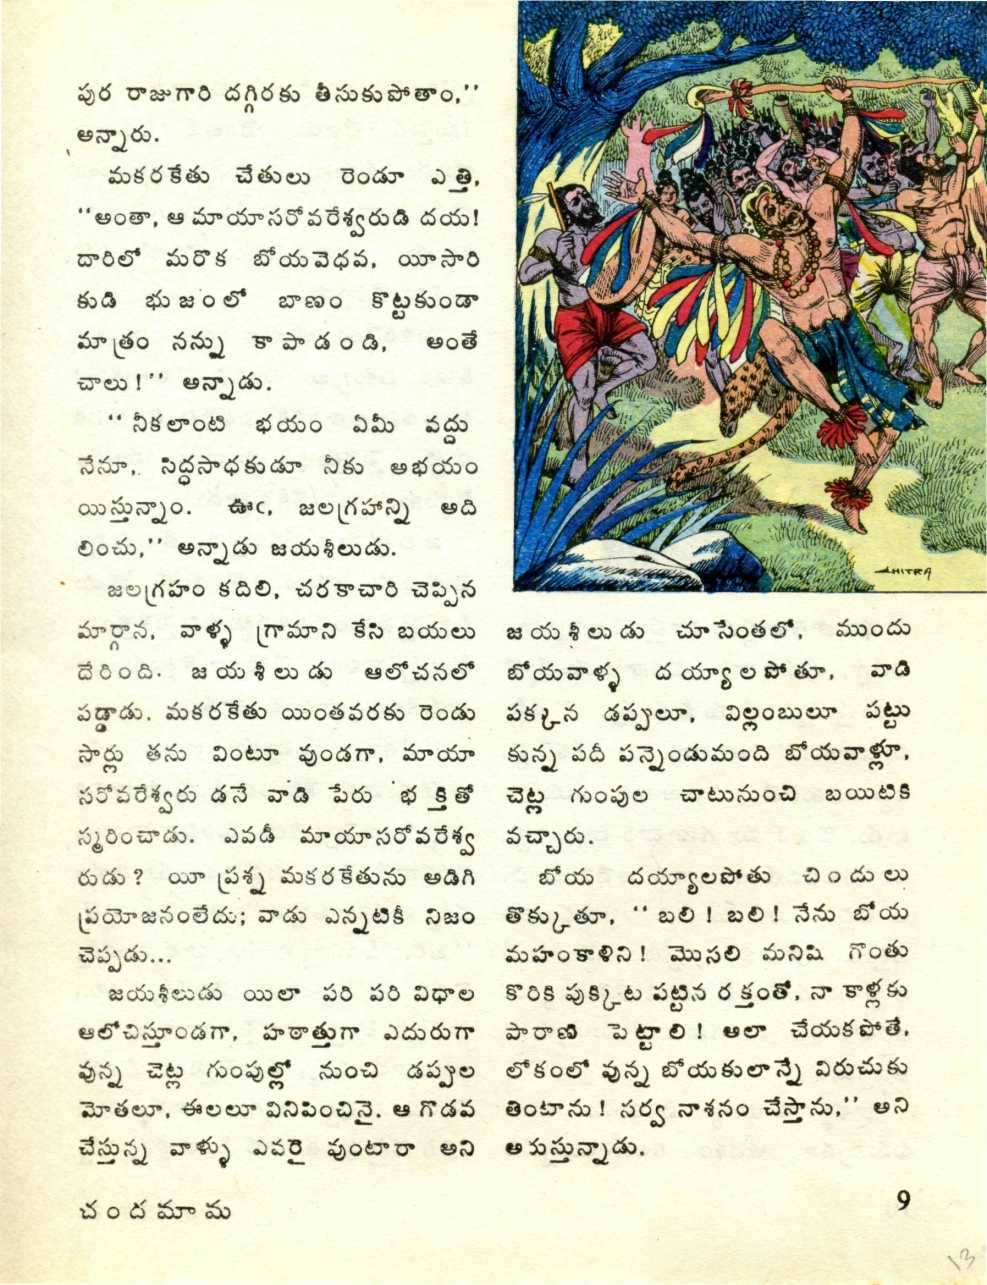 పుర రాజుగారి దగ్గిరకు తీసుకుపోతాం,''
అన్నారు.
మకరకేతు చేతులు రెండూ ఎత్తి,
''అంతా, ఆ మాయాసరోవరేశ్వరుడి దయ!
దారిలో మరొక బోయవెధవ, యీసారి
కుడి భుజంలో బాణం కొట్టకుండా
మాత్రం నన్ను కాపాడండి, అంతే
చాలు!'' అన్నాడు.
''నీకలాంటి భయం ఏమీ వద్దు
నేనూ, సిద్ధసాధకుడూ నీకు అభయం
యిస్తున్నాం. ఊఁ, జలగ్రహాన్ని అది
లించు,'' అన్నాడు జయశీలుడు.
జలగ్రహం కదిలి, చరకాచారి చెప్పిన
మార్గాన, వాళ్ళ గ్రామాని కేసి బయలు
దేరింది. జయశీలుడు ఆలోచనలో
పడ్డాడు. మకరకేతు యింతవరకు రెండు
సార్లు తను వింటూ వుండగా, మాయా
సరోవరేశ్వరు డనే వాడి పేరు భక్తితో
స్మరించాడు. ఎవడీ మాయాసరోవరేశ్వ
రుడు? యీ ప్రశ్న మకరకేతును అడిగి
ప్రయోజనంలేదు; వాడు ఎన్నటికీ నిజం
చెప్పడు...
జయశీలుడు యిలా పరి పరి విధాల
ఆలోచిస్తూండగా, హఠాత్తుగా ఎదురుగా
వున్న చెట్ల గుంపుల్లో నుంచి డప్పుల
మోతలూ, ఈలలూ వినిపించినై. ఆ గొడవ
చేస్తున్న వాళ్ళు ఎవరై వుంటారా అని
CHITRA
జయశీలుడు చూసేంతలో, ముందు
బోయవాళ్ళ దయ్యాలపోతూ, వాడి
పక్కన డప్పులూ, విల్లంబులూ పట్టు
కున్న పదీ పన్నెండుమంది బోయవాళ్లూ,
చెట్ల గుంపుల చాటునుంచి బయిటికి
వచ్చారు.
బోయ దయ్యాలపోతు చిందులు
తొక్కుతూ, ''బలి! బలి! నేను బోయ
మహంకాళిని! మొసలి మనిషి గొంతు
కొరికి పుక్కిట పట్టిన రక్తంతో, నా కాళ్లకు
పారాణి పెట్టాలి! అలా చేయకపోతే,
లోకంలో వున్న బోయకులాన్నే విరుచుకు
తింటాను! సర్వ నాశనం చేస్తాను,'' అని
అరుస్తున్నాడు.
చందమామ
9
13